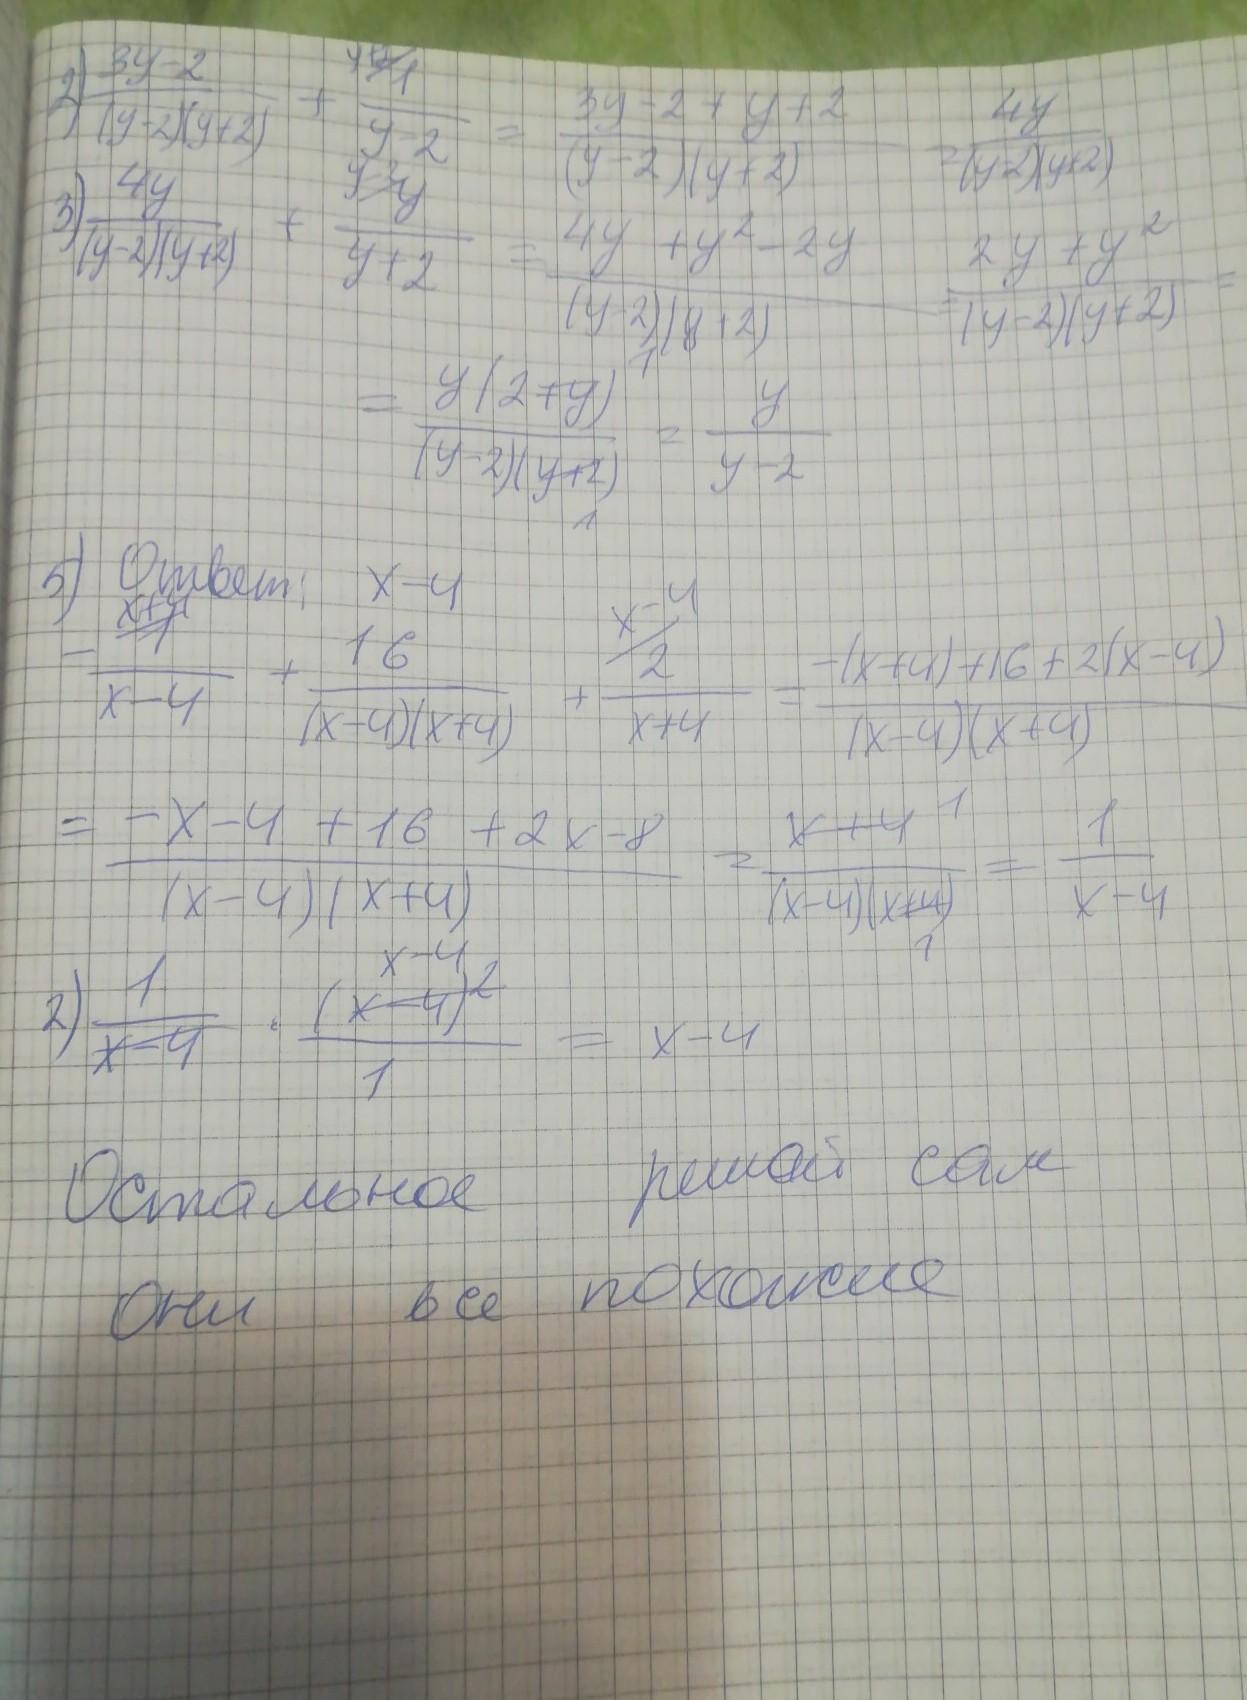 2) (3y-2)/((y-2)(y+2)) + 1/(y-2) = (3y-2+y+2)/((y-2)(y+2)) = 4y/((y-2)(y+2))
3) 4y/((y-2)(y+2)) + y/(y+2) = (4y+y²-2y)/((y-2)(y+2)) = (2y+y²)/((y-2)(y+2)) =
= y(2+y)/((y-2)(y+2)) = y/(y-2)
5) Ответ: x-4
-1/(x-4) + 16/((x-4)(x+4)) + 2/(x+4) = (-(x+4)+16+2(x-4))/((x-4)(x+4))
= (-x-4+16+2x-8)/((x-4)(x+4)) = (x+4)/((x-4)(x+4)) = 1/(x-4)
2) 1/(x-4) · (x-4)²/1 = x-4
Остальное решай сам
Они все похожие